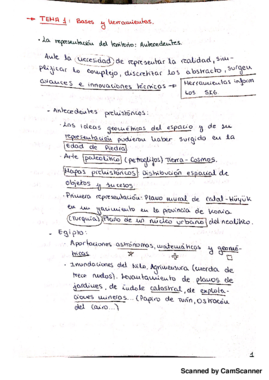 → TEMA 1: Bases y herramientas.
• La representación del territorio: Antecedentes.
Ante la necesidad de representar la realidad, sim-
plificar lo complejo, discretizar los abstracto, surgen
avances e innovaciones técnicas → Herramientas inform
Los SIG
- Antecedentes prehistóricos:
· Las ideas geométricas del espacio y de su
representación pudieron haber surgido en la
Edad de Piedra
· Arte paleolítico (petroglifos) Tierra-Cosmos.
Mapas prehistóricos Distribución espacial de
objetos y sucesos.
· Primera representación: Plano mural de Catal-Hüyük
en un yacimiento en la provincia de Konia
(Turquía) Plano de un núcleo urbano del neolítico.
• Egipto:
· Aportaciones astronómicas, matemáticas y geomé-
tricas
· Inundaciones del Nilo, Agrimensura (cuerda de
trece nudos). Levantamiento de planos de
jardines, de índole catastral, de explota-
ciones mineras. (Papiro de Turín, Ostracón
del Cairo...)
1
Scanned by CamScanner
Scanned by CamScanner